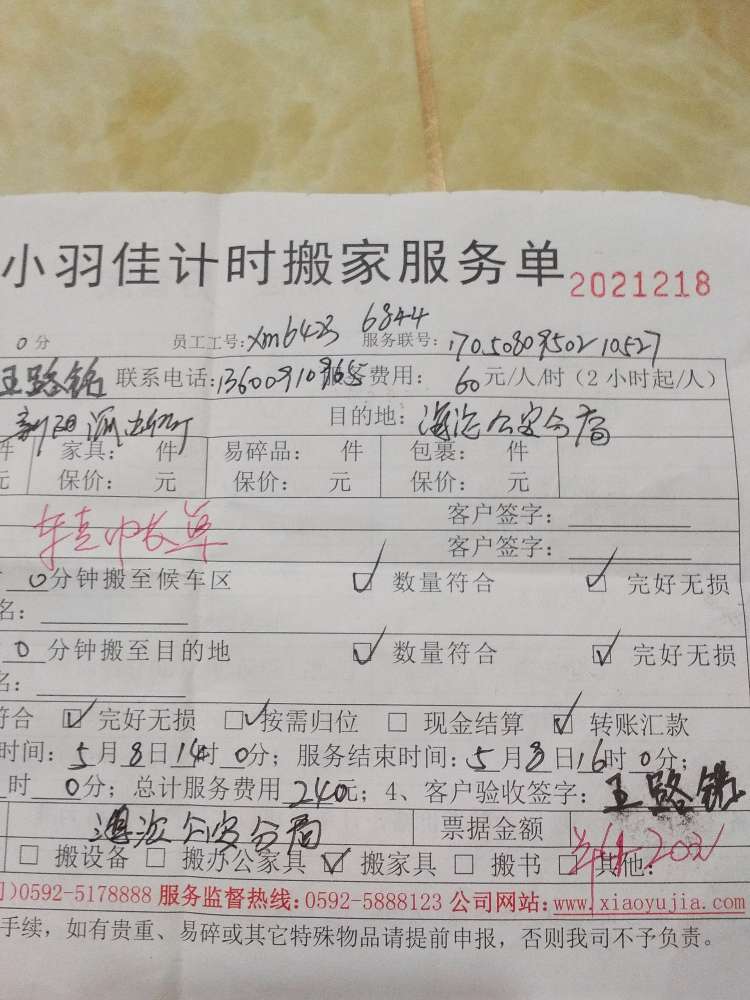 小羽佳计时搬家服务单 2021218
0分 员工工号:xm6423 6844 服务联号:1705080950210527
王路铭 联系电话:13600910965 服务费用: 60元/人/时(2小时起/人)
新阳派出所 目的地:海沧公安分局
件 家具: 件 易碎品: 件 包裹: 件
元 保价: 元 保价: 元 保价: 元
客户签字:
客户签字:
0分钟搬至候车区 ☑ 数量符合 ☑ 完好无损
名:
0分钟搬至目的地 ☑ 数量符合 ☑ 完好无损
名:
符合 ☑ 完好无损 ☑ 按需归位 □ 现金结算 ☑ 转账汇款
时间:5月8日14时0分;服务结束时间:5月8日16时0分;
时 0分;总计服务费用240元;4、客户验收签字:王路铭
海沧公安分局 票据金额
□ 搬设备 □ 搬办公家具 ☑ 搬家具 □ 搬书 □ 其他:
)0592-5178888 服务监督热线:0592-5888123 公司网站:www.xiaoyujia.com
手续，如有贵重、易碎或其它特殊物品请提前申报，否则我司不予负责。